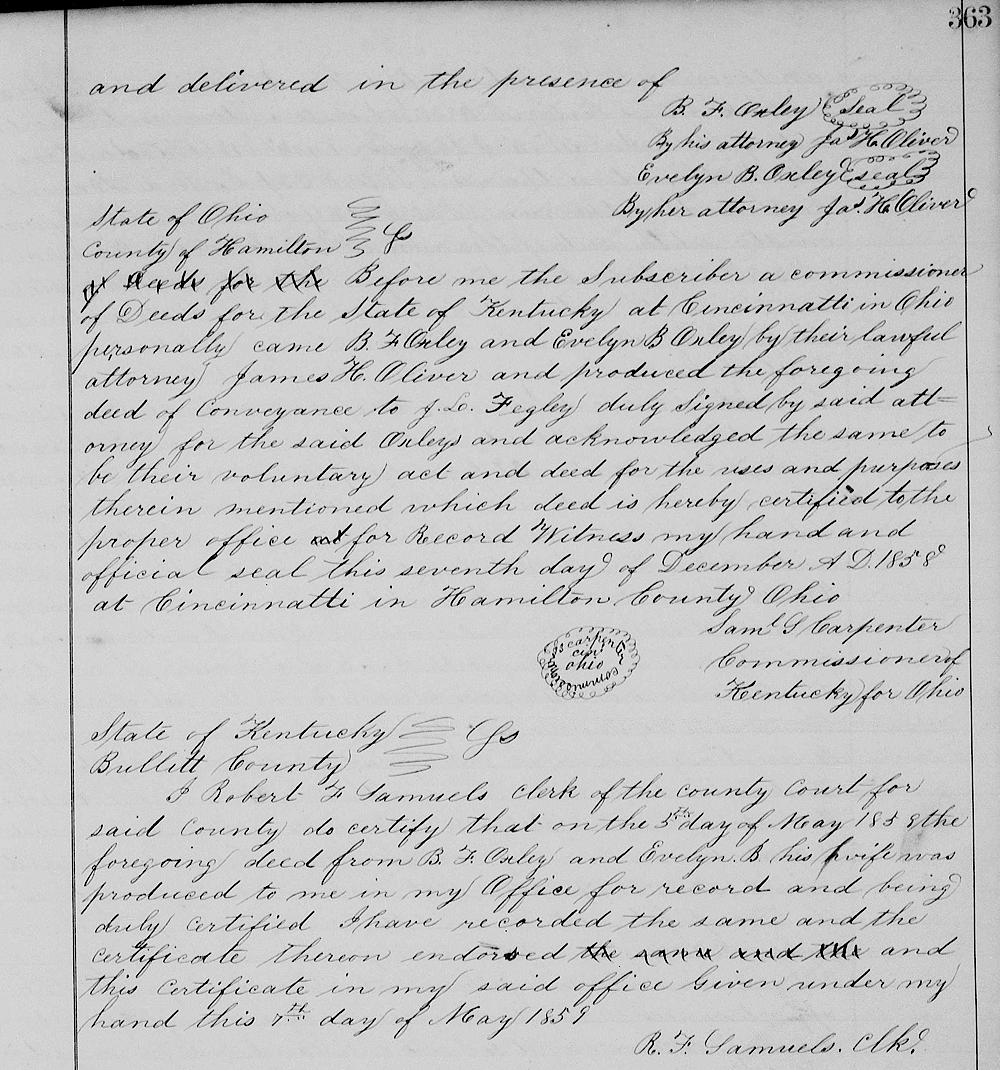 363
and delivered in the presence of
B. F. Oxley (Seal)
By his attorney Jas H. Oliver
Evelyn B. Oxley (seal)
By her attorney Jas. H. Oliver
State of Ohio
County of Hamilton } Ss
of Deeds for the Before me the Subscriber a commissioner
of Deeds for the State of Kentucky at Cincinnatti in Ohio
personally came B. F Oxley and Evelyn B Oxley by their lawful
attorney James H. Oliver and produced the foregoing
deed of Conveyance to J. L. Fegley duly Signed by said att=
orney for the said Oxleys and acknowledged the same to
be their voluntary act and deed for the uses and purposes
therein mentioned which deed is hereby certified to the
proper office and for Record Witness my hand and
official seal this seventh day of December A D. 1858
at Cincinnatti in Hamilton County Ohio
Saml G Carpenter
Commissioner of
Kentucky for Ohio
carpenter
cin
ohio
State of Kentucky } Ss
Bullitt County
I Robert F Samuels clerk of the county Court for
said County do certify that on the 5th day of May 1859 the
foregoing deed from B. F. Oxley and Evelyn. B his wife was
produced to me in my Office for record and being
duly certified I have recorded the same and the
certificate thereon endorsed the same and the and
this certificate in my said office Given under my
hand this 7th day of May 1859
R. F. Samuels. Clk.